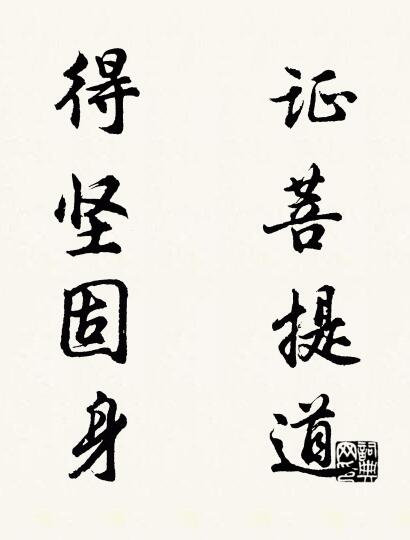 证菩提道
得坚固身
詞典网